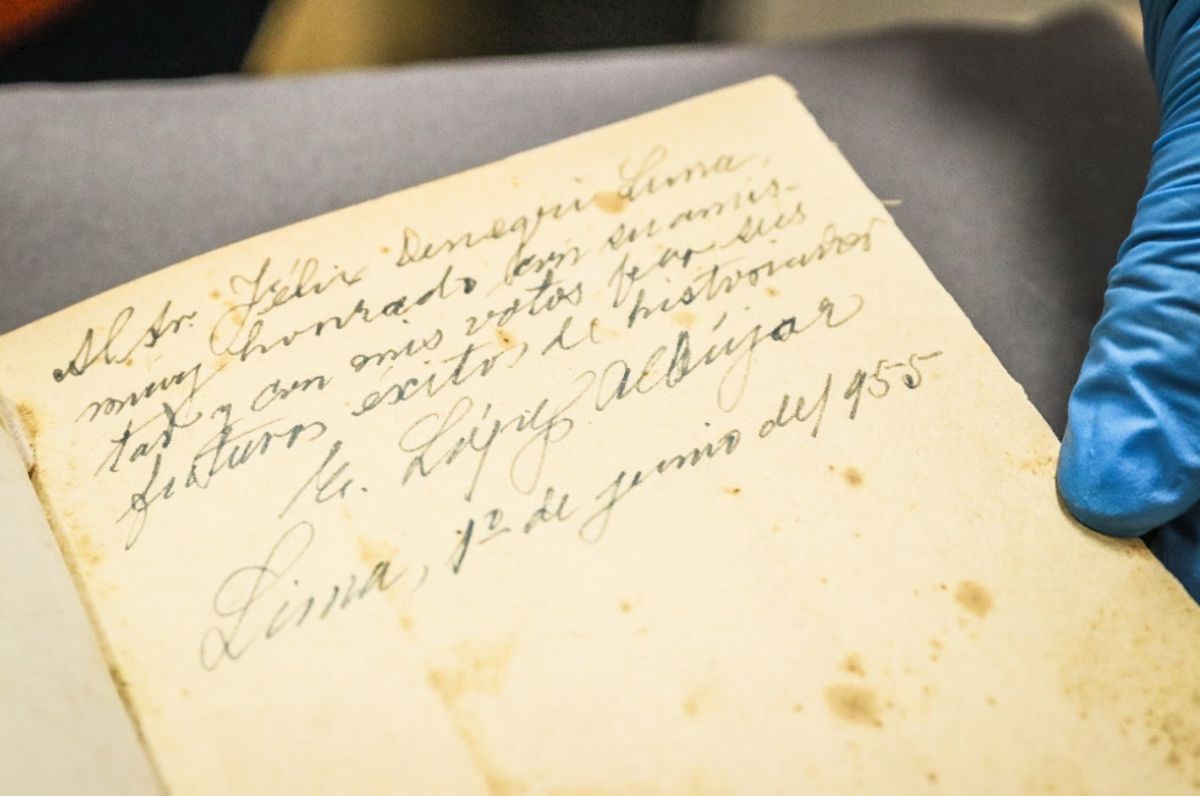 Al Sr. Félix Denegri Luna,
muy honrado con su amis-
tad y con mis votos por sus
futuros éxitos de historiador
E. López Albújar
Lima, 1º de junio del 955